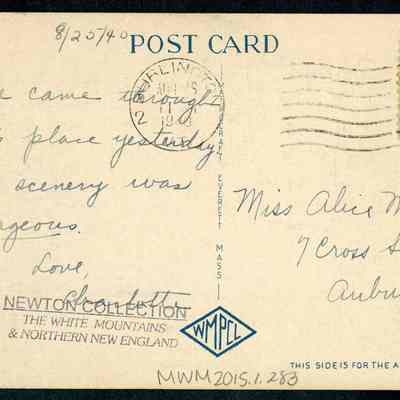 8/25/40
POST CARD
came through
place yesterday.
scenery was
geous.
Love,
Charlotte
NEWTON COLLECTION
THE WHITE MOUNTAINS
& NORTHERN NEW ENGLAND
EVERETT MASS
WMPCL
Miss Alice M
7 Cross S
Aubu
THIS SIDE IS FOR THE A
MWM2015.1.283